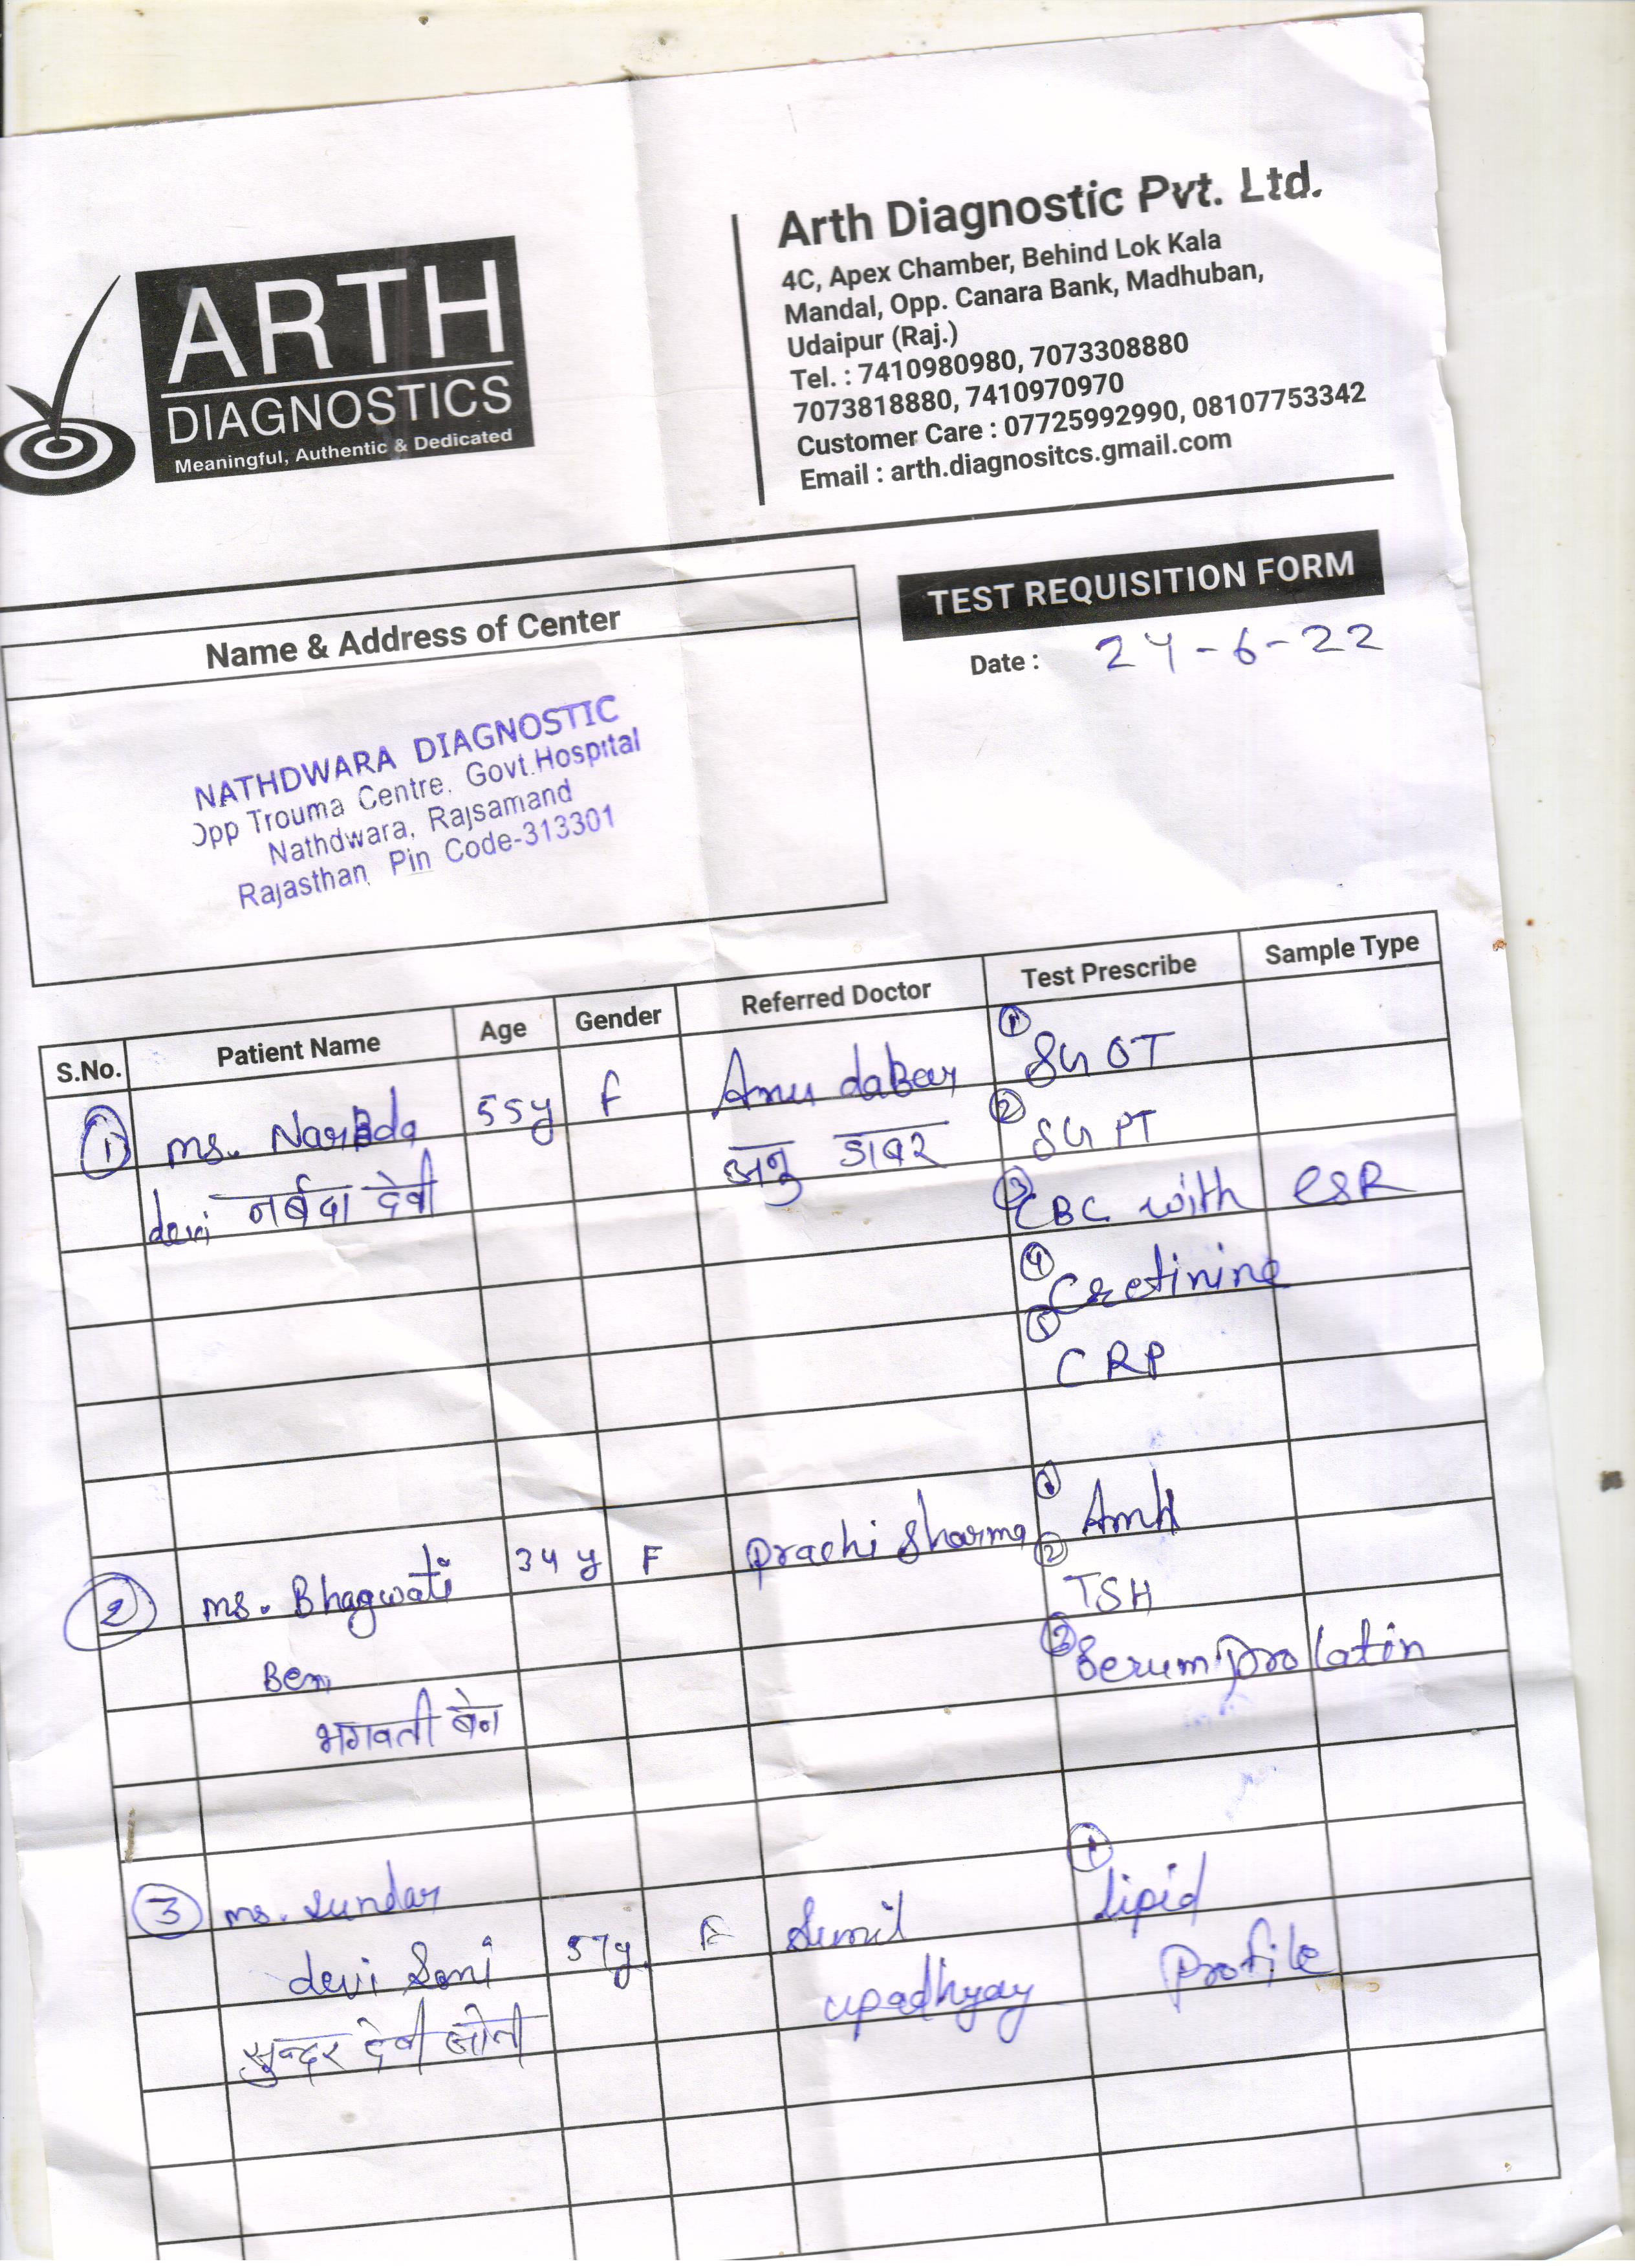 ARTH
DIAGNOSTICS
Meaningful, Authentic & Dedicated
Arth Diagnostic Pvt. Ltd.
4C, Apex Chamber, Behind Lok Kala
Mandal, Opp. Canara Bank, Madhuban,
Udaipur (Raj.)
Tel. : 7410980980, 7073308880
7073818880, 7410970970
Customer Care : 07725992990, 08107753342
Email : arth.diagnositcs.gmail.com
TEST REQUISITION FORM
Date : 24-6-22
Name & Address of Center
NATHDWARA DIAGNOSTIC
Opp Trouma Centre, Govt.Hospital
Nathdwara, Rajsamand
Rajasthan, Pin Code-313301
S.No. Patient Name Age Gender Referred Doctor Test Prescribe Sample Type
1 ms. Narbda 55y f Anu dabar 1 SGOT
devi नर्बदा देवी अनु डाबर 2 SGPT
3 CBC with ESR
4 Cretinine
5 CRP
2 ms. Bhagwati 34 y F Prachi Sharma 1 Amh
Ben 2 TSH
भगवती बेन 3 Serum prolatin
3 ms. Sundar 1 Lipid
devi Soni 57y. F Sunil Profile
सुन्दर देवी सोनी upadhyay